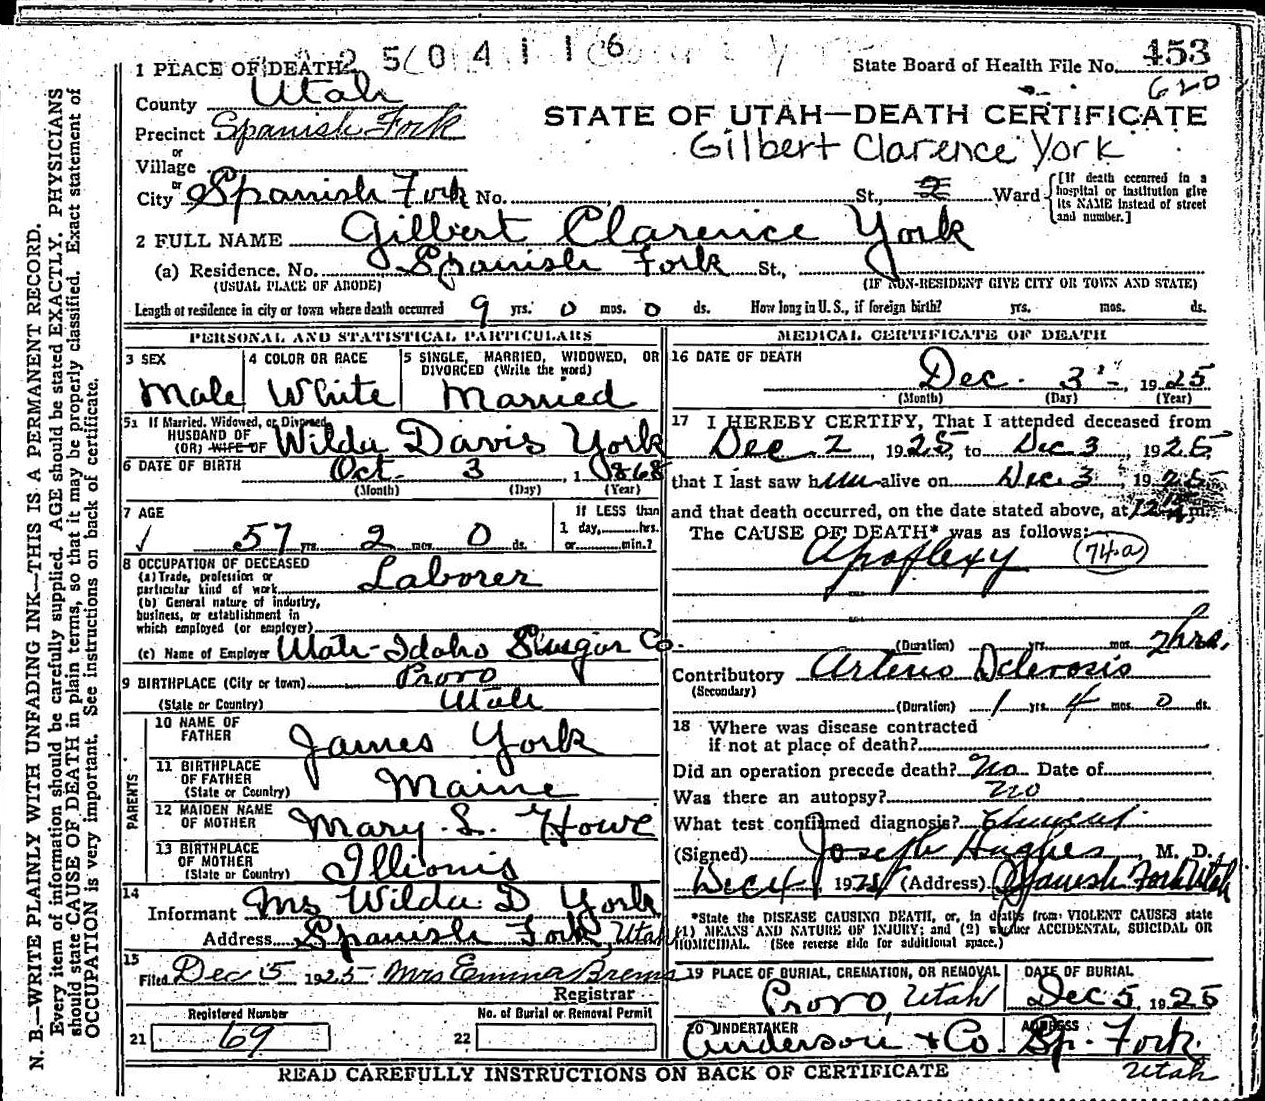 2504116
1 PLACE OF DEATH
State Board of Health File No. 453
620
County Utah
STATE OF UTAH—DEATH CERTIFICATE
Precinct Spanish Fork
Gilbert Clarence York
or
Village
or
City Spanish Fork No. St., 2 Ward [If death occurred in a hospital or institution give its NAME instead of street and number.]
2 FULL NAME Gilbert Clarence York
(a) Residence. No. Spanish Fork St.,
(USUAL PLACE OF ABODE) (IF NON-RESIDENT GIVE CITY OR TOWN AND STATE)
Length of residence in city or town where death occurred 9 yrs. 0 mos. 0 ds. How long in U.S., if foreign birth? yrs. mos. ds.
PERSONAL AND STATISTICAL PARTICULARS
3 SEX
Male
4 COLOR OR RACE
White
5 SINGLE, MARRIED, WIDOWED, OR
DIVORCED (Write the word)
Married
5a If Married, Widowed, or Divorced
HUSBAND OF
(OR) WIFE OF Wilda Davis York
6 DATE OF BIRTH Oct. 3, 1868
(Month) (Day) (Year)
7 AGE
57 yrs. 2 mos. 0 ds.
If LESS than
1 day, hrs.
or min.?
8 OCCUPATION OF DECEASED
(a) Trade, profession or
particular kind of work Laborer
(b) General nature of industry,
business, or establishment in
which employed (or employer)
(c) Name of Employer Utah-Idaho Suugar Co.
9 BIRTHPLACE (City or town) Provo
(State or Country) Utah
PARENTS
10 NAME OF
FATHER James York
11 BIRTHPLACE
OF FATHER
(State or Country) Maine
12 MAIDEN NAME
OF MOTHER Mary L. Howe
13 BIRTHPLACE
OF MOTHER
(State or Country) Illionis
14
Informant Mrs Wilda D York
Address Spanish Fork, Utah
15
Filed Dec 5 1925 Mrs Emma Brems
Registrar
Registered Number
21 69
No. of Burial or Removal Permit
22
MEDICAL CERTIFICATE OF DEATH
16 DATE OF DEATH
Dec. 3, 1925
(Month) (Day) (Year)
17 I HEREBY CERTIFY, That I attended deceased from
Dec 2, 1925, to Dec 3, 1925,
that I last saw him alive on Dec 3, 1925
and that death occurred, on the date stated above, at 12 m.
The CAUSE OF DEATH* was as follows:
Apoplexy 74a
(Duration) yrs. mos. 2 hrs.
Contributory Arterio Sclerosis
(Secondary)
(Duration) 1 yrs. 4 mos. 0 ds.
18 Where was disease contracted
if not at place of death?
Did an operation precede death? No Date of
Was there an autopsy? No
What test confirmed diagnosis?
(Signed) Joseph Hughes, M. D.
Dec 4, 1925 (Address) Spanish Fork Utah
*State the DISEASE CAUSING DEATH, or, in deaths from VIOLENT CAUSES state
(1) MEANS AND NATURE OF INJURY; and (2) whether ACCIDENTAL, SUICIDAL OR
HOMICIDAL. (See reverse side for additional space.)
19 PLACE OF BURIAL, CREMATION, OR REMOVAL
Provo, Utah
DATE OF BURIAL
Dec 5, 1925
20 UNDERTAKER
Anderson + Co.
ADDRESS
Sp. Fork.
Utah
READ CAREFULLY INSTRUCTIONS ON BACK OF CERTIFICATE
N. B.—WRITE PLAINLY WITH UNFADING INK—THIS IS A PERMANENT RECORD.
Every item of information should be carefully supplied. AGE should be stated EXACTLY. PHYSICIANS
should state CAUSE OF DEATH in plain terms, so that it may be properly classified. Exact statement of
OCCUPATION is very important. See instructions on back of certificate.